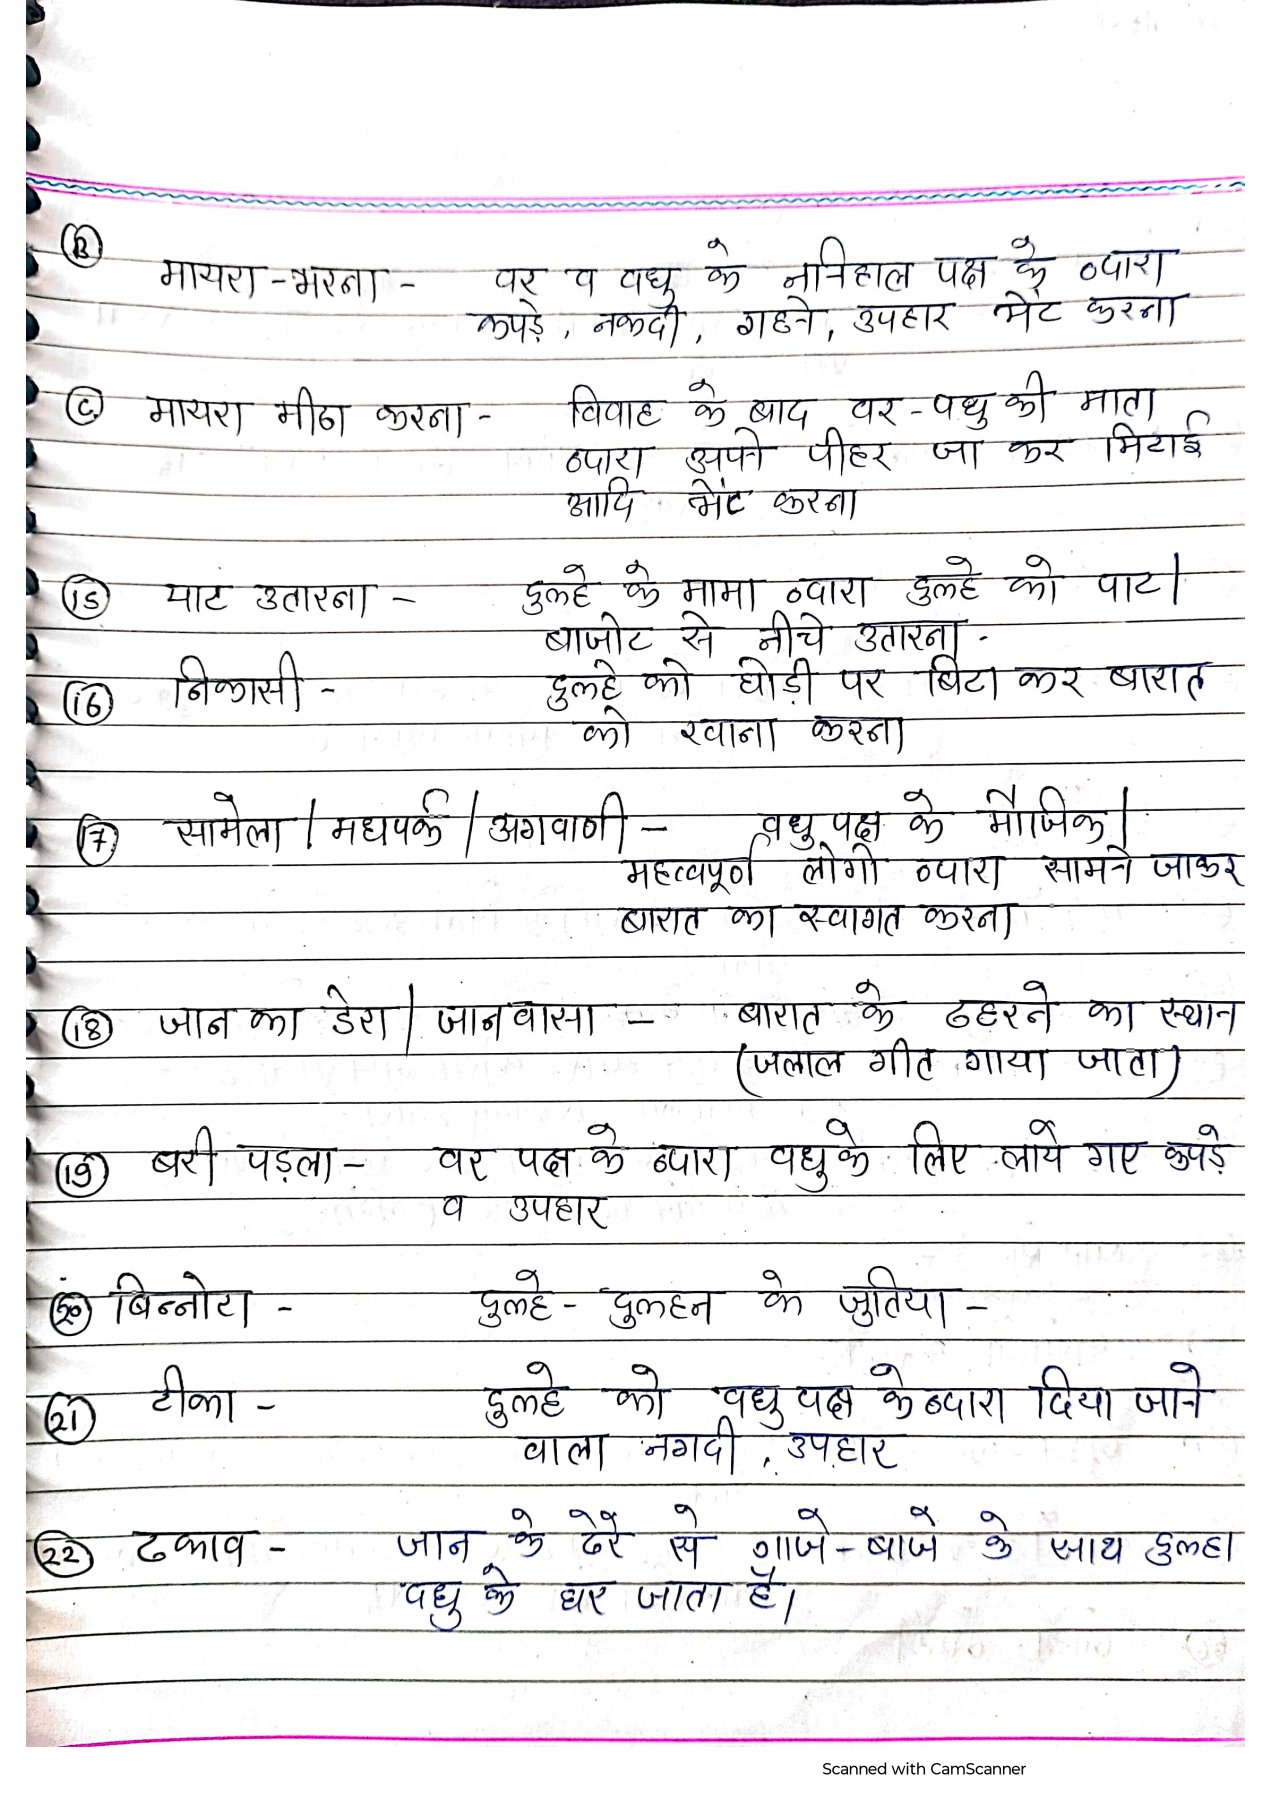 (B)
मायरा-भरना - वर व वधु के ननिहाल पक्ष के व्दारा
कपड़े, नकदी, गहने, उपहार भेंट करना
(C) मायरा मीठा करना - विवाह के बाद वर-वधु की माता
व्दारा अपने पीहर जा कर मिठाई
आदि भेंट करना
(15) पाट उतारना - दुल्हे के मामा व्दारा दुल्हे को पाट/
बाजोट से नीचे उतारना -
(16) निकासी - दुल्हे को घोड़ी पर बिठा कर बारात
को रवाना करना
(17) सामेला / मधुपर्क / अगवाणी - वधु पक्ष के मौजिक/
महत्वपूर्ण लोगो व्दारा सामने जाकर
बारात का स्वागत करना
(18) जान का डेरा / जानवासा - बारात के ठहरने का स्थान
(जलाल गीत गाया जाता)
(19) बरी पड़ला - वर पक्ष के व्दारा वधु के लिए लाये गए कपड़े
व उपहार
(20) बिन्नोटा - दुल्हे - दुल्हन के जुतिया -
(21) टीका - दुल्हे को वधु पक्ष के व्दारा दिया जाने
वाला नगदी, उपहार
(22) ढकाव - जान के ढेरे से गाजे-बाजे के साथ दुल्हा
वधु के घर जाता है।
Scanned with CamScanner